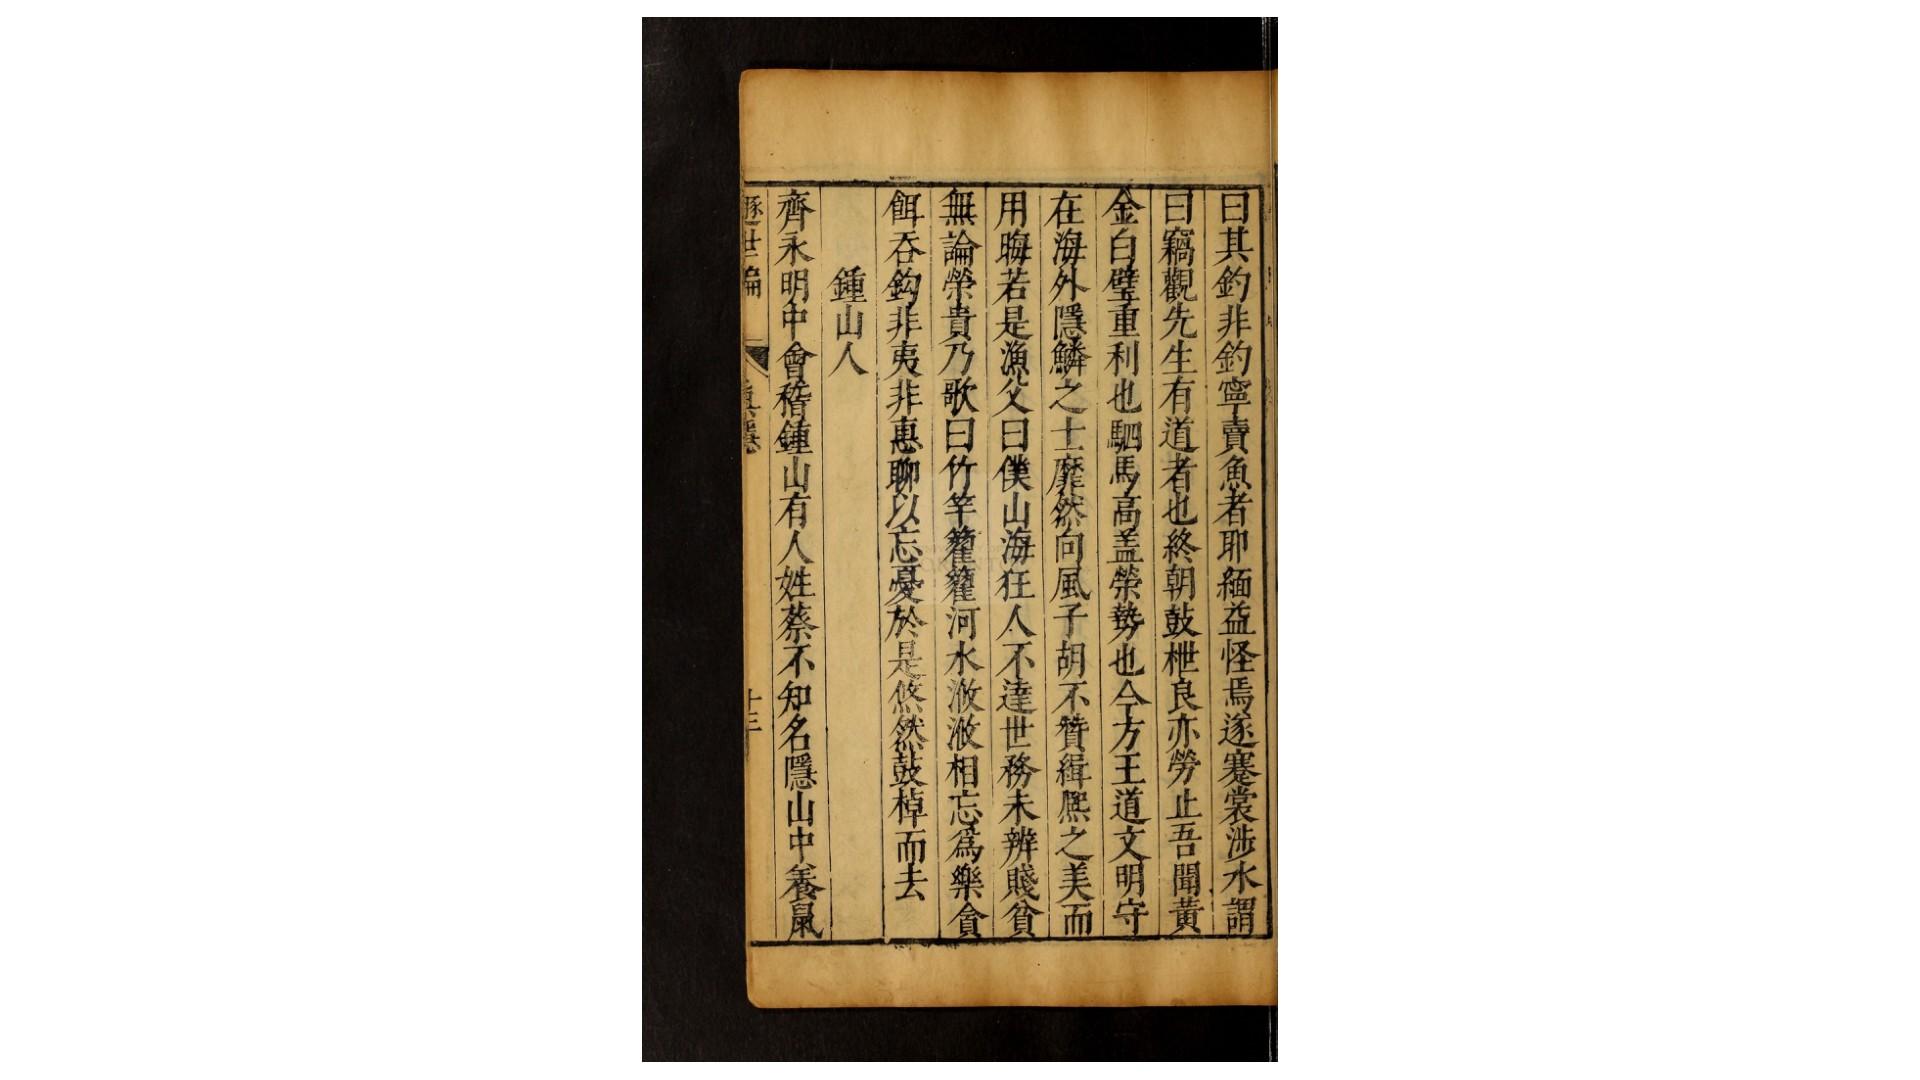 曰其釣非釣寧賣魚者耶緬益怪焉遂蹇裳涉水謂
曰竊觀先生有道者也終朝鼓枻良亦勞止吾聞黃
金白璧重利也駟馬高盖榮勢也今方王道文明守
在海外隱鱗之士靡然向風子胡不贊緝熈之美而
用晦若是漁父曰僕山海狂人不達世務未辨賤貧
無論榮貴乃歌曰竹竿籊籊河水浟浟相忘爲樂貪
餌吞鈎非夷非惠聊以忘憂於是悠然鼓棹而去
鍾山人
齊永明中會稽鍾山有人姓蔡不知名隱山中養鼠
遯世編
真隱
十三